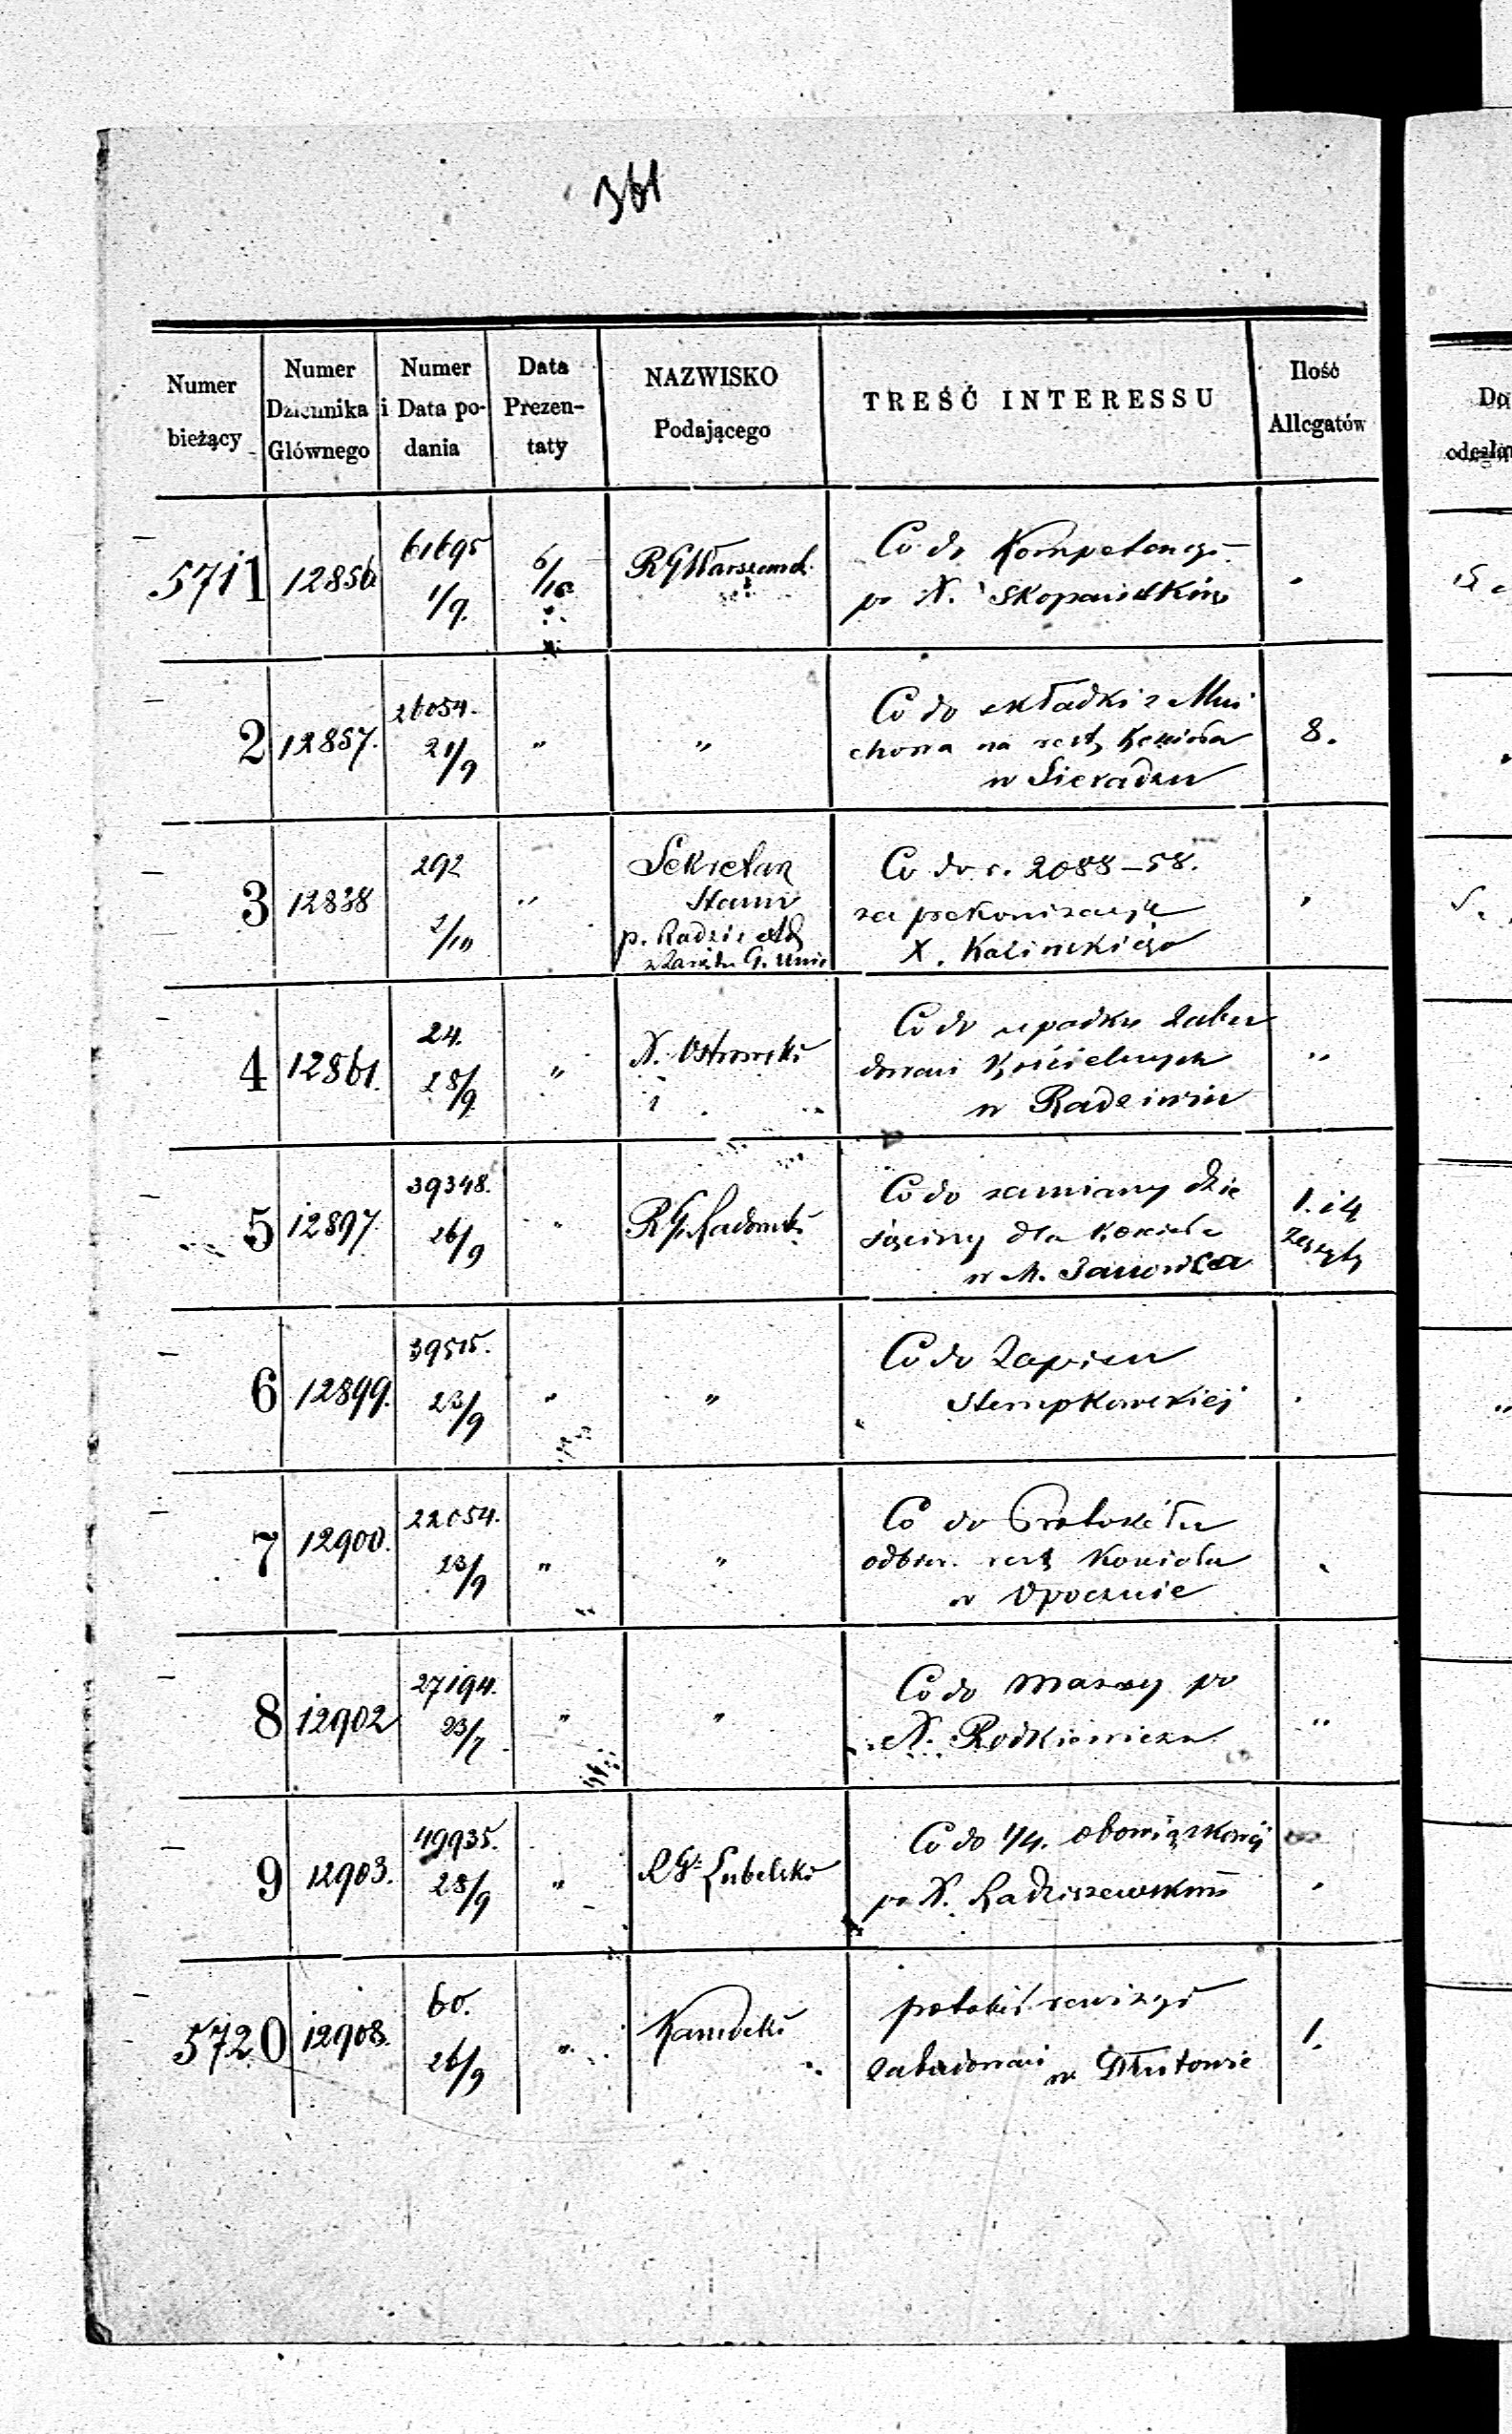 361
Numer bieżący
Numer Dziennika Głównego
Numer i Data podania
Data Prezentaty
NAZWISKO Podającego
TREŚĆ INTERESSU
Ilość Allegatów
5711 12856 61695 1/9. 6/10 RGWarszawsk. Co do Kompetencyi
po X.
2 12857. 26054. 21/9 " " Co do składki z Mni 8.
chowa na rest. Kościoła
w Sieradzu
3 12838 292 2/10 " Sekretarz Stanu Co do r. 2088-58.
za prekonizacyą
X. Kalińskiego
4 12861. 24. 28/9 " X. Ostrowski Co do upadku Zabu
dowań Kościelnych
w Radziwiu
5 12897 39348. 26/9 " RG. Radomski Co do zamiany dzie 1. i 4 zeszyty
sięciny dla Kościoła
w M. Janowca
6 12899. 39515. 23/9 " " Co do Zapisu
Stempkowskiej
7 12900. 22054. 23/9 " " Co do Protokółu
odbior. rest. Kościoła
w Opocznie
8 12902 27194. 23/7 " " Co do Massy po "
X. Rodkiewiczu
9 12903. 49935. 28/9 " RGLubelski Co do 1/4. obowiązkowej
po X. Radziszewskim
5720 12908. 60. 26/9 " protokół rewizyi 1.
Zabudowań w Dłutowie
Da
odesła